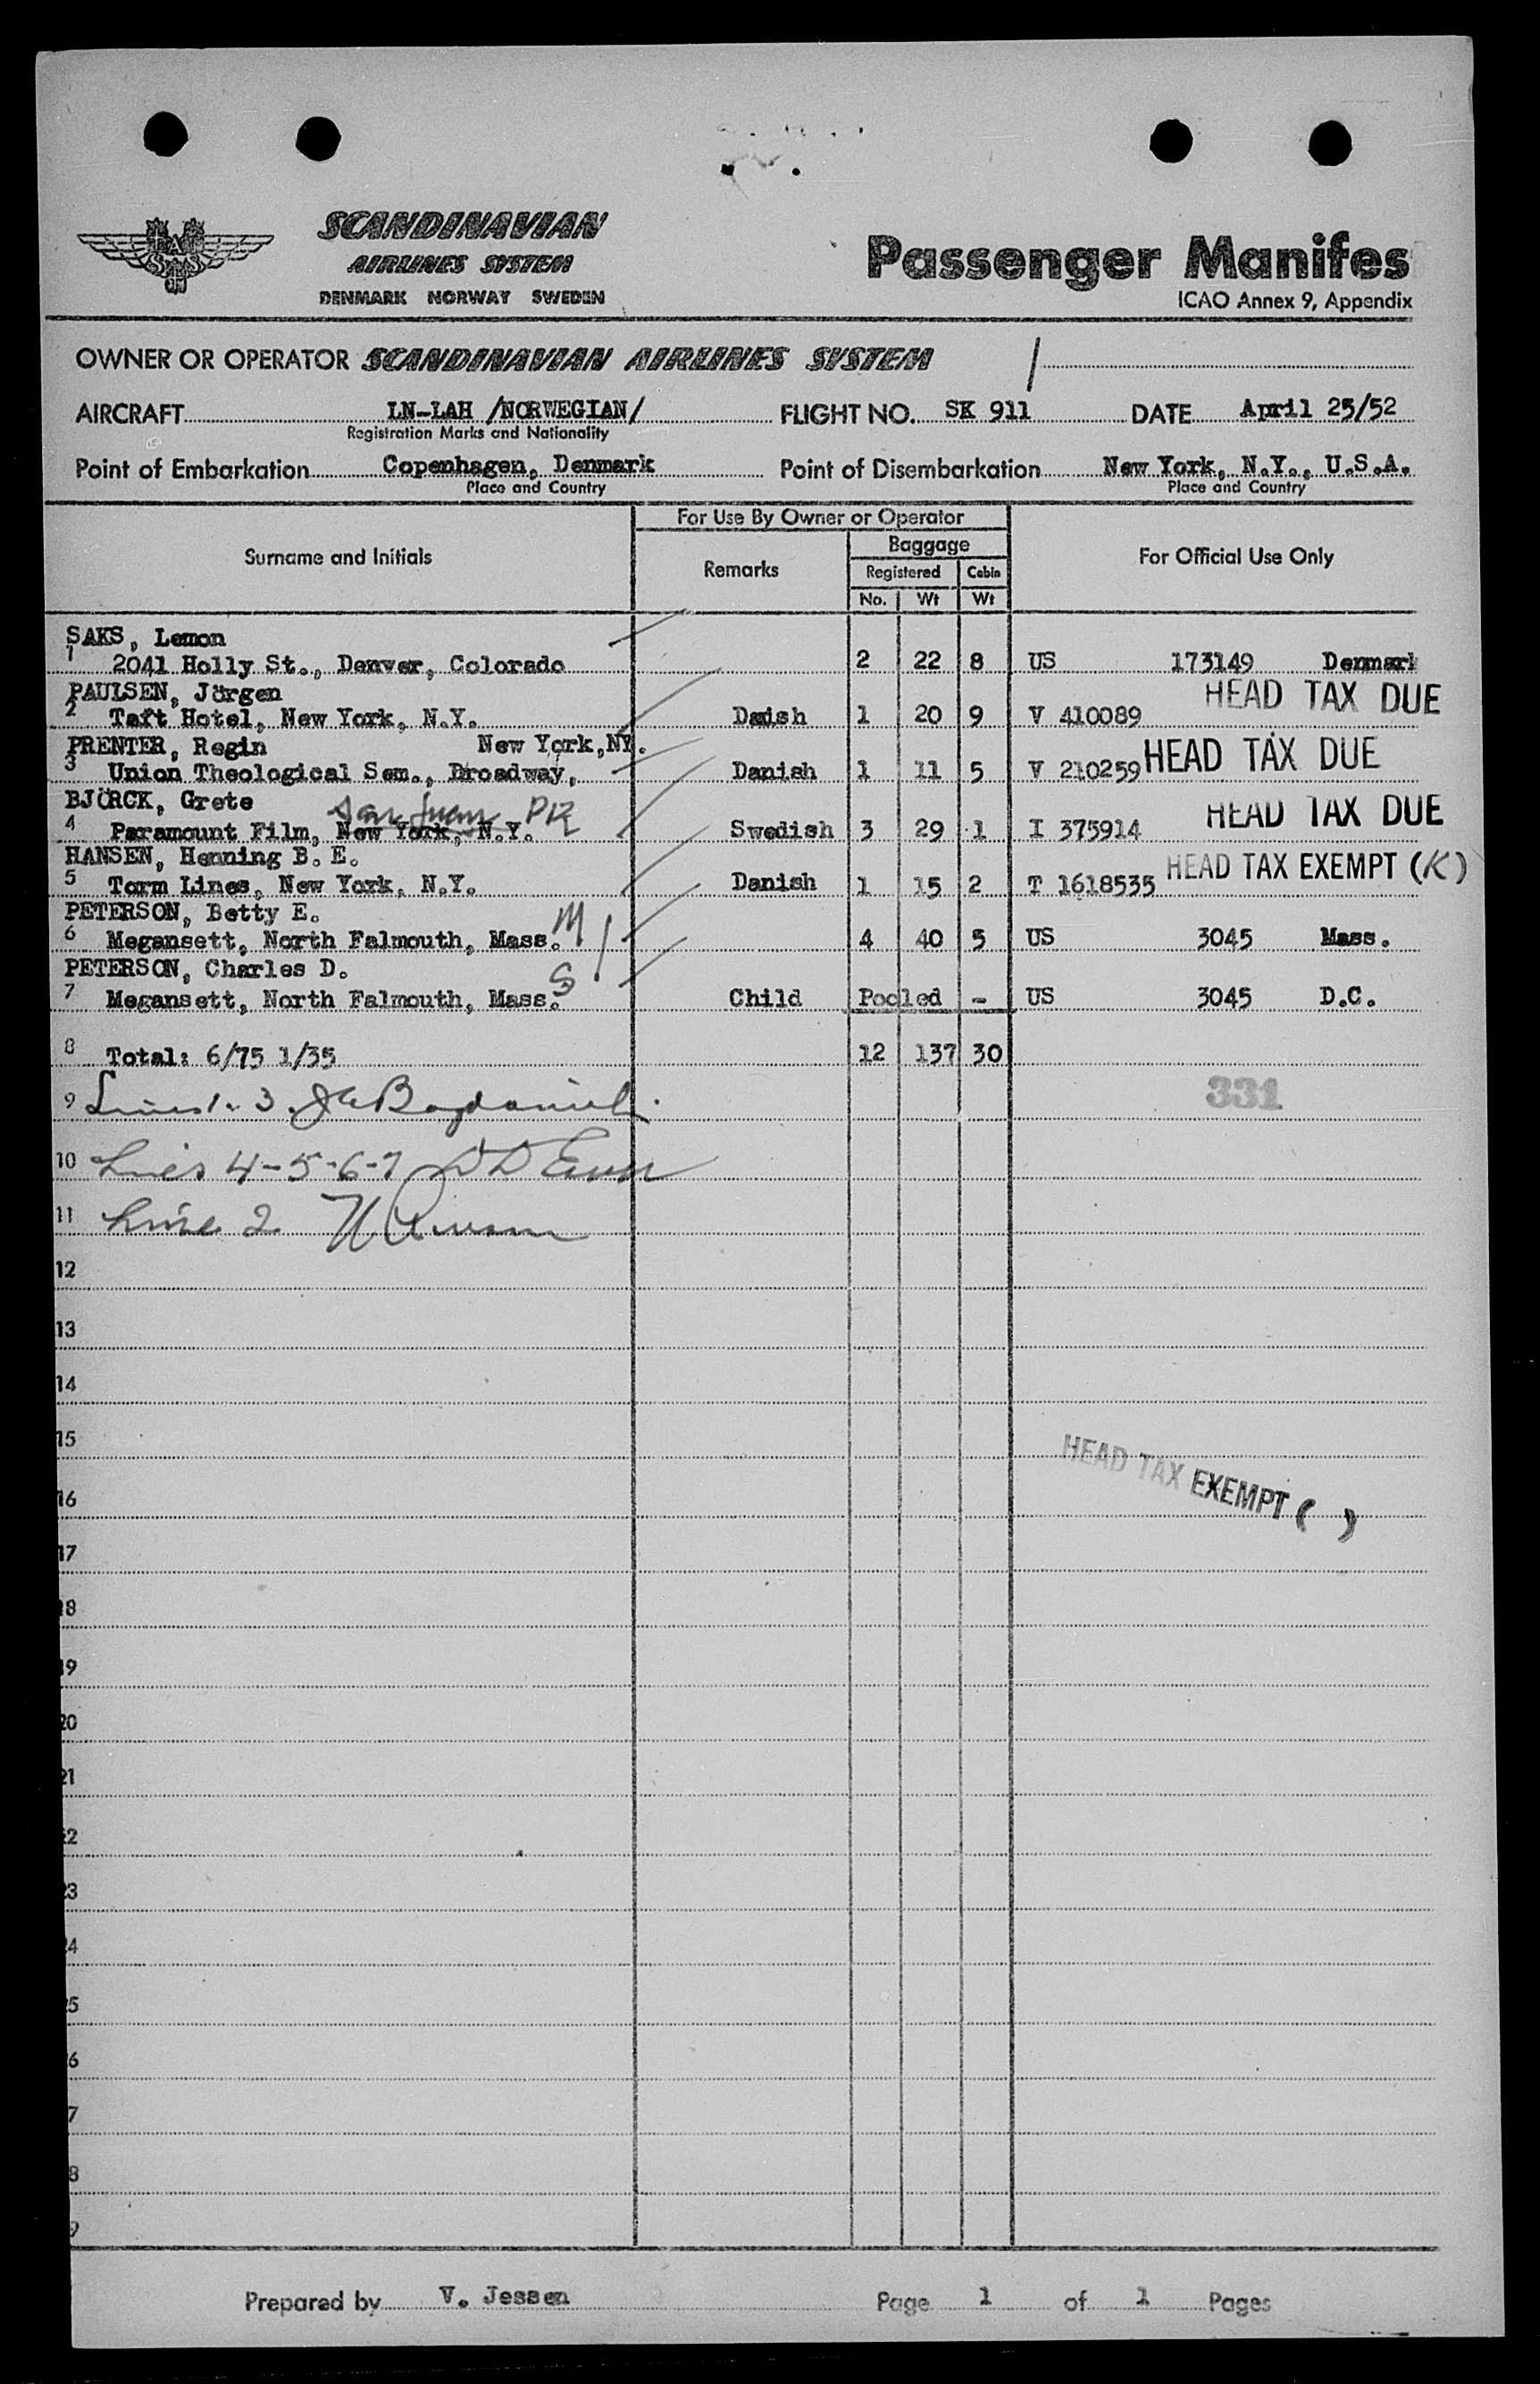 SCANDINAVIAN
AIRLINES SYSTEM
DENMARK NORWAY SWEDEN
Passenger Manifes
ICAO Annex 9, Appendix
OWNER OR OPERATOR SCANDINAVIAN AIRLINES SYSTEM
AIRCRAFT LN-LAH /NORWEGIAN/ FLIGHT NO. SK 911 DATE April 25/52
Registration Marks and Nationality
Point of Embarkation Copenhagen, Denmark Point of Disembarkation New York, N.Y., U.S.A.
Place and Country Place and Country
For Use By Owner or Operator
Surname and Initials Remarks Baggage For Official Use Only
Registered Cabin
No. Wt Wt
SAKS, Lemon
1 2041 Holly St., Denver, Colorado 2 22 8 US 173149 Denmark
PAULSEN, Jörgen HEAD TAX DUE
2 Taft Hotel, New York, N.Y. Danish 1 20 9 V 410089
PRENTER, Regin New York, NY. HEAD TAX DUE
3 Union Theological Sem., Broadway, Danish 1 11 5 V 210259
BJÖRCK, Grete San Juan PR HEAD TAX DUE
4 Paramount Film, New York, N.Y. Swedish 3 29 1 I 375914
HANSEN, Henning B. E. HEAD TAX EXEMPT (K)
5 Torm Lines, New York, N.Y. Danish 1 15 2 T 1618535
PETERSON, Betty E. M
6 Megansett, North Falmouth, Mass. 4 40 5 US 3045 Mass.
PETERSON, Charles D. S
7 Megansett, North Falmouth, Mass. Child Pooled - US 3045 D.C.
8 Total: 6/75 1/35 12 137 30
331
9 Lines 1. 3.
10 Lines 4-5-6-7
11 Line 2
12
13
14
15
HEAD TAX EXEMPT ( )
16
17
18
19
20
21
22
23
24
25
6
7
8
9
Prepared by V. Jessen Page 1 of 1 Pages